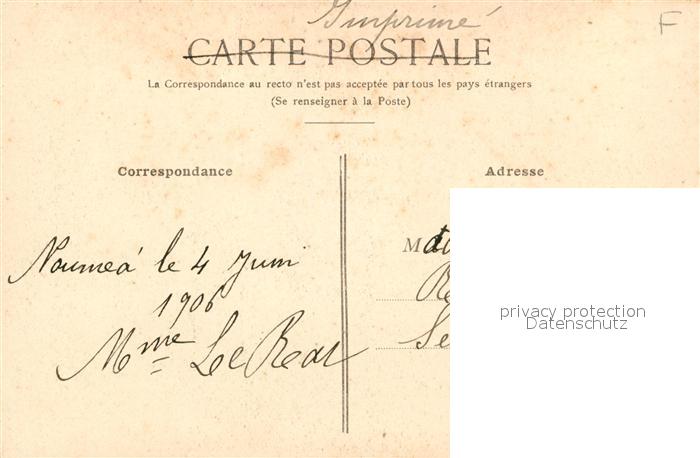 Imprimé
F
CARTE POSTALE
La Correspondance au recto n'est pas acceptée par tous les pays étrangers
(Se renseigner à la Poste)
Correspondance
Adresse
Nouméa le 4 Juin
1906
Mme Le Réat
M
privacy protection
Datenschutz
Se